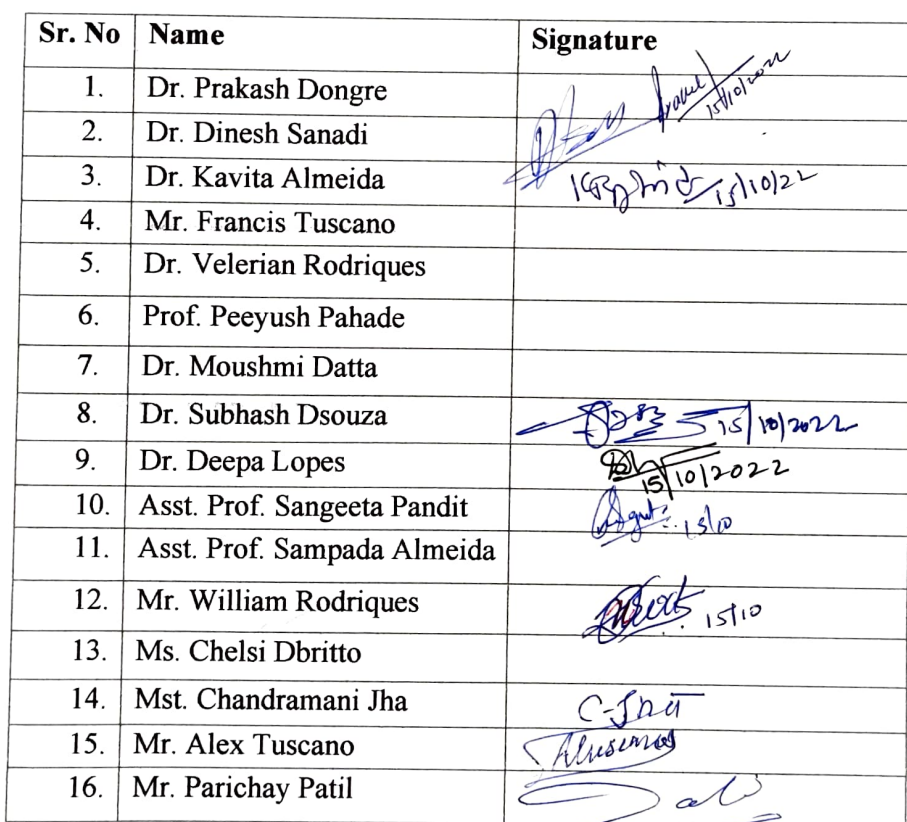 Sr. No Name Signature
1. Dr. Prakash Dongre 15/10/2022
2. Dr. Dinesh Sanadi
3. Dr. Kavita Almeida 15/10/22
4. Mr. Francis Tuscano
5. Dr. Velerian Rodriques
6. Prof. Peeyush Pahade
7. Dr. Moushmi Datta
8. Dr. Subhash Dsouza 15/10/2022
9. Dr. Deepa Lopes 15/10/2022
10. Asst. Prof. Sangeeta Pandit 15/10
11. Asst. Prof. Sampada Almeida
12. Mr. William Rodriques 15/10
13. Ms. Chelsi Dbritto
14. Mst. Chandramani Jha
15. Mr. Alex Tuscano
16. Mr. Parichay Patil